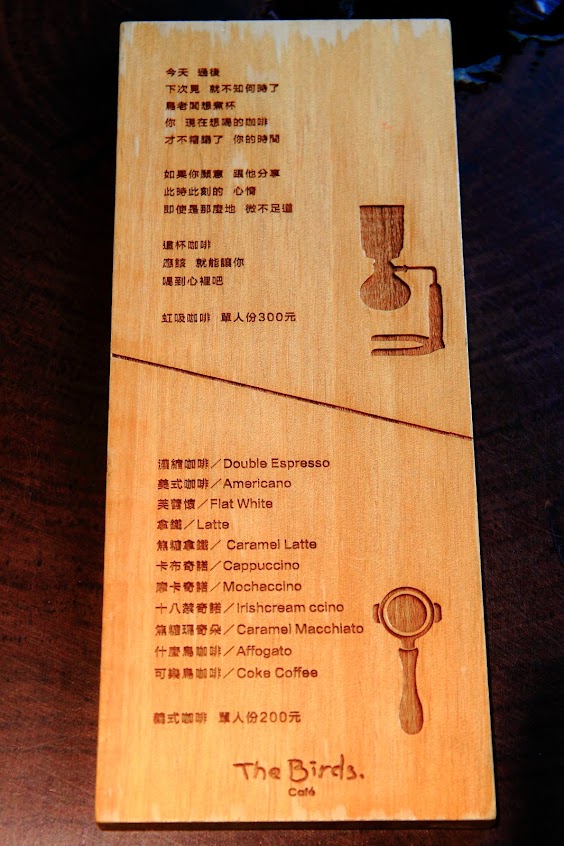 今天 過後
下次見 就不知何時了
鳥老闆想煮杯
你 現在想喝的咖啡
才不糟蹋了 你的時間
如果你願意 跟他分享
此時此刻的 心情
即使是那麼地 微不足道
這杯咖啡
應該 就能讓你
喝到心裡吧
虹吸咖啡 單人份300元
濃縮咖啡／Double Espresso
美式咖啡／Americano
芙蕾懷／Flat White
拿鐵／Latte
焦糖拿鐵／ Caramel Latte
卡布奇諾／Cappuccino
摩卡奇諾／Mochaccino
十八禁奇諾／Irishcream ccino
焦糖瑪奇朵／Caramel Macchiato
什麼鳥咖啡／Affogato
可樂鳥咖啡／Coke Coffee
義式咖啡 單人份200元
The Birds.
Café